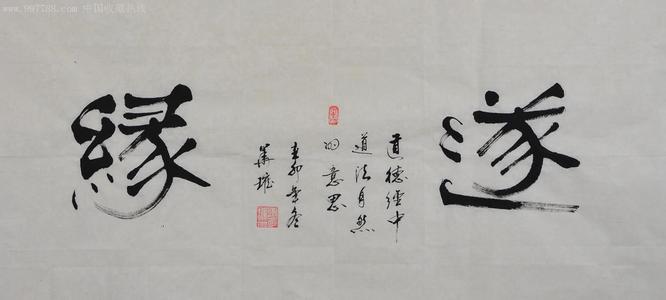 www.997788.com 中国收藏热线
遂
道德經中
道法自然
的意思
辛卯年冬
縁